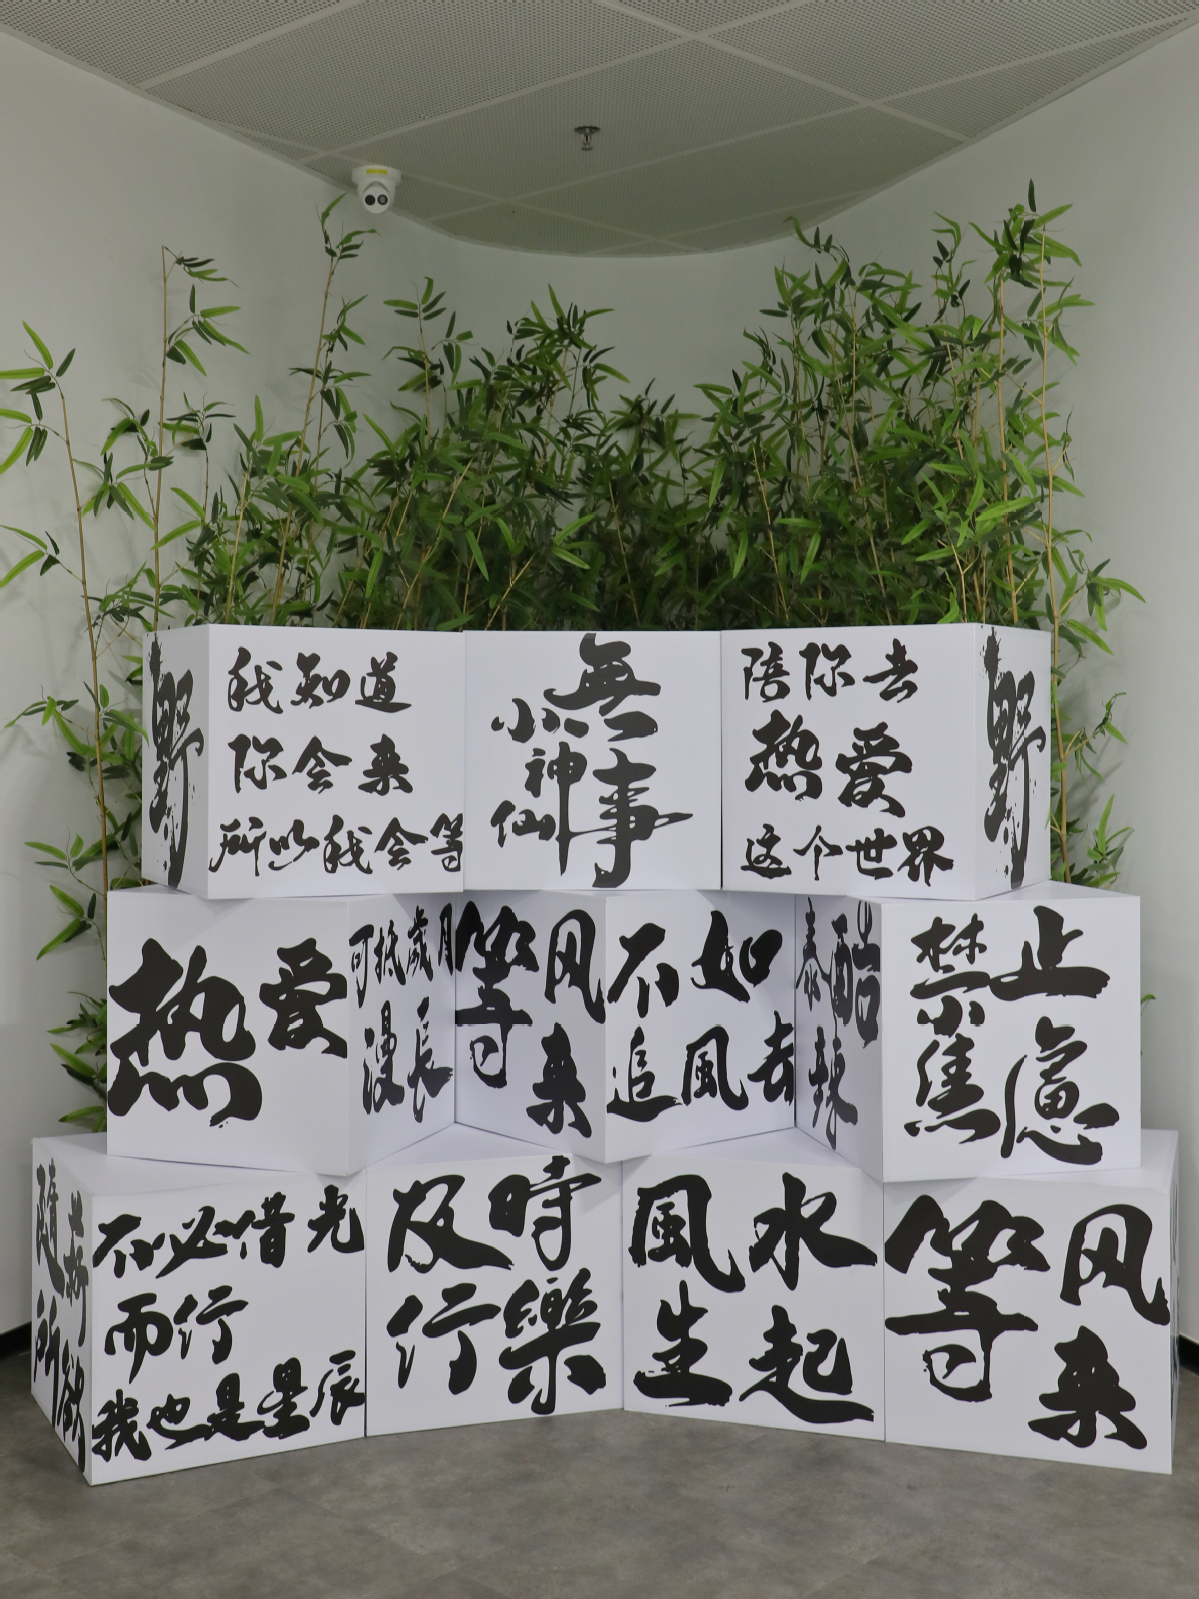 野
我知道
你会来
所以我会等
無事
小神仙
陪你去
热爱
这个世界
野
热爱
可抵歲月
漫長
等风
来
不如
追風去
禁止
焦慮
隨
所欲
不必借光
而行
我也是星辰
及時
行樂
風水
生起
等风
来